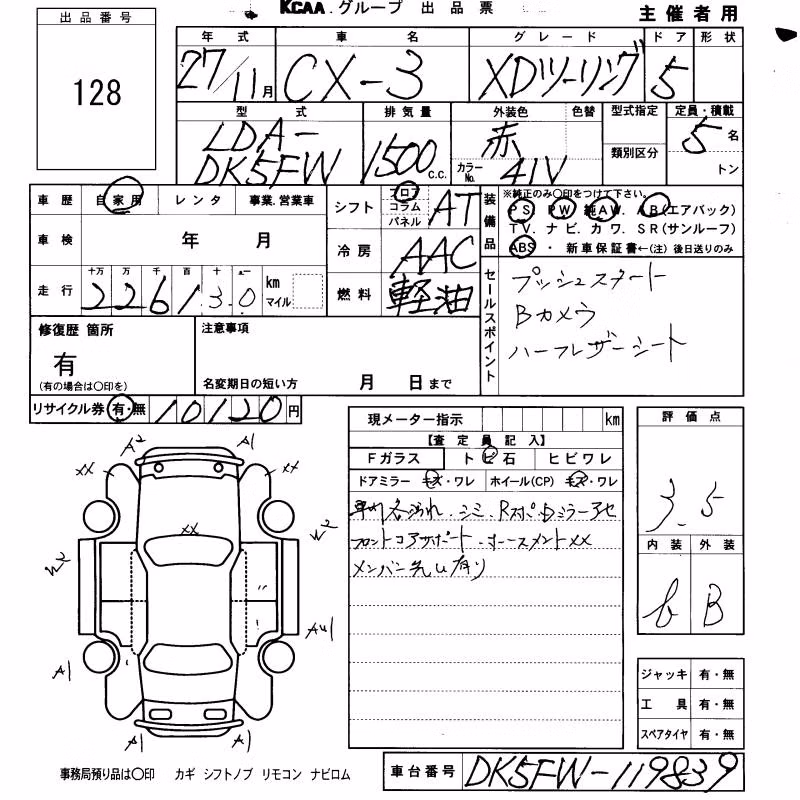 KCAA.グループ 出品票
主催者用
出品番号
128
年式 車名 グレード ドア 形状
27/11月 CX-3 XDツーリング 5
型式 排気量 外装色 色替 型式指定 定員・積載
LDA-DK5FW 1500c.c. 赤 カラーNo. 41V 類別区分 5名
トン
車歴 自家用 レンタ 事業.営業車
シフト フロア コラム パネル AT
装備品 ※純正のみ○印をつけて下さい。
PS. PW. 純AW. AB(エアバック)
TV. ナビ. カワ. SR(サンルーフ)
ABS・新車保証書←(注)後日送りのみ
車検 年 月
冷房 AAC
走行 十万 万 千 百 十 km マイル
燃料 軽油
セールスポイント
プッシュスタート
Bカメラ
ハーフレザーシート
修復歴 箇所
有
(有の場合は○印を)
注意事項
名変期日の短い方 月 日まで
リサイクル券 有・無 10120円
現メーター指示 km
【査定員記入】
Fガラス トビ石 ヒビワレ
ドアミラー キズ・ワレ ホイール(CP) キズ・ワレ
フロントコアサポート
メンバー
有り
評価点
3.5
内装 外装
B
A2 A1
XX XX
XX
W2 W2
A1
A1 A1
A1 A1
ジャッキ 有・無
工具 有・無
スペアタイヤ 有・無
事務局預り品は○印 カギ シフトノブ リモコン ナビロム
車台番号 DK5FW-119839